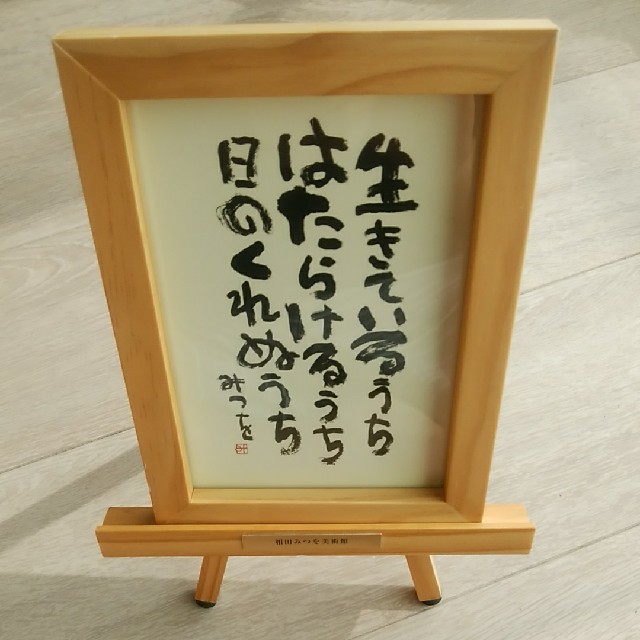 生きているうち
はたらけるうち
日のくれぬうち
みつを
相田みつを美術館